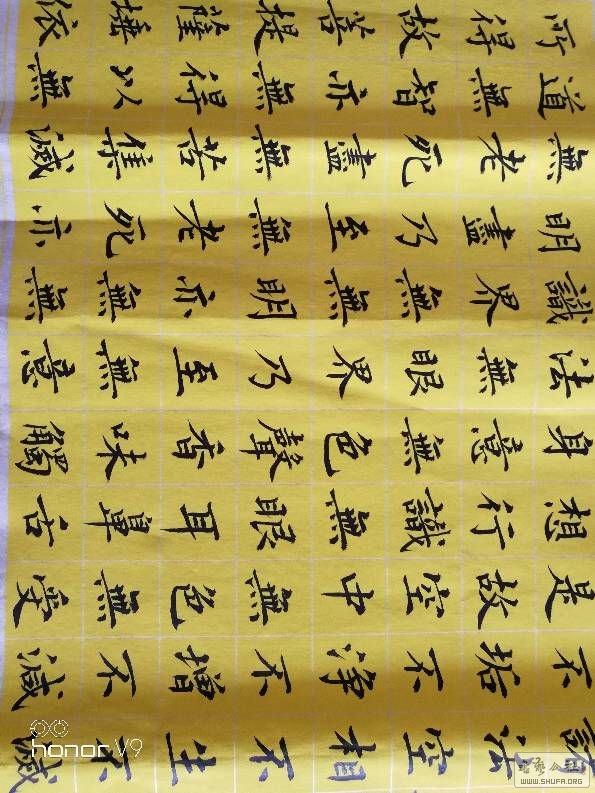 諸法空相不生不滅
不垢不淨不增不減
是故空中無色無受
想行識無眼耳鼻舌
身意無色聲香味觸
法無眼界乃至無意
識界無無明亦無無
明盡乃至無老死亦
無老死盡無苦集滅
道無智亦無得以無
所得故菩提薩埵依
honor V9
WWW.SHUFA.ORG